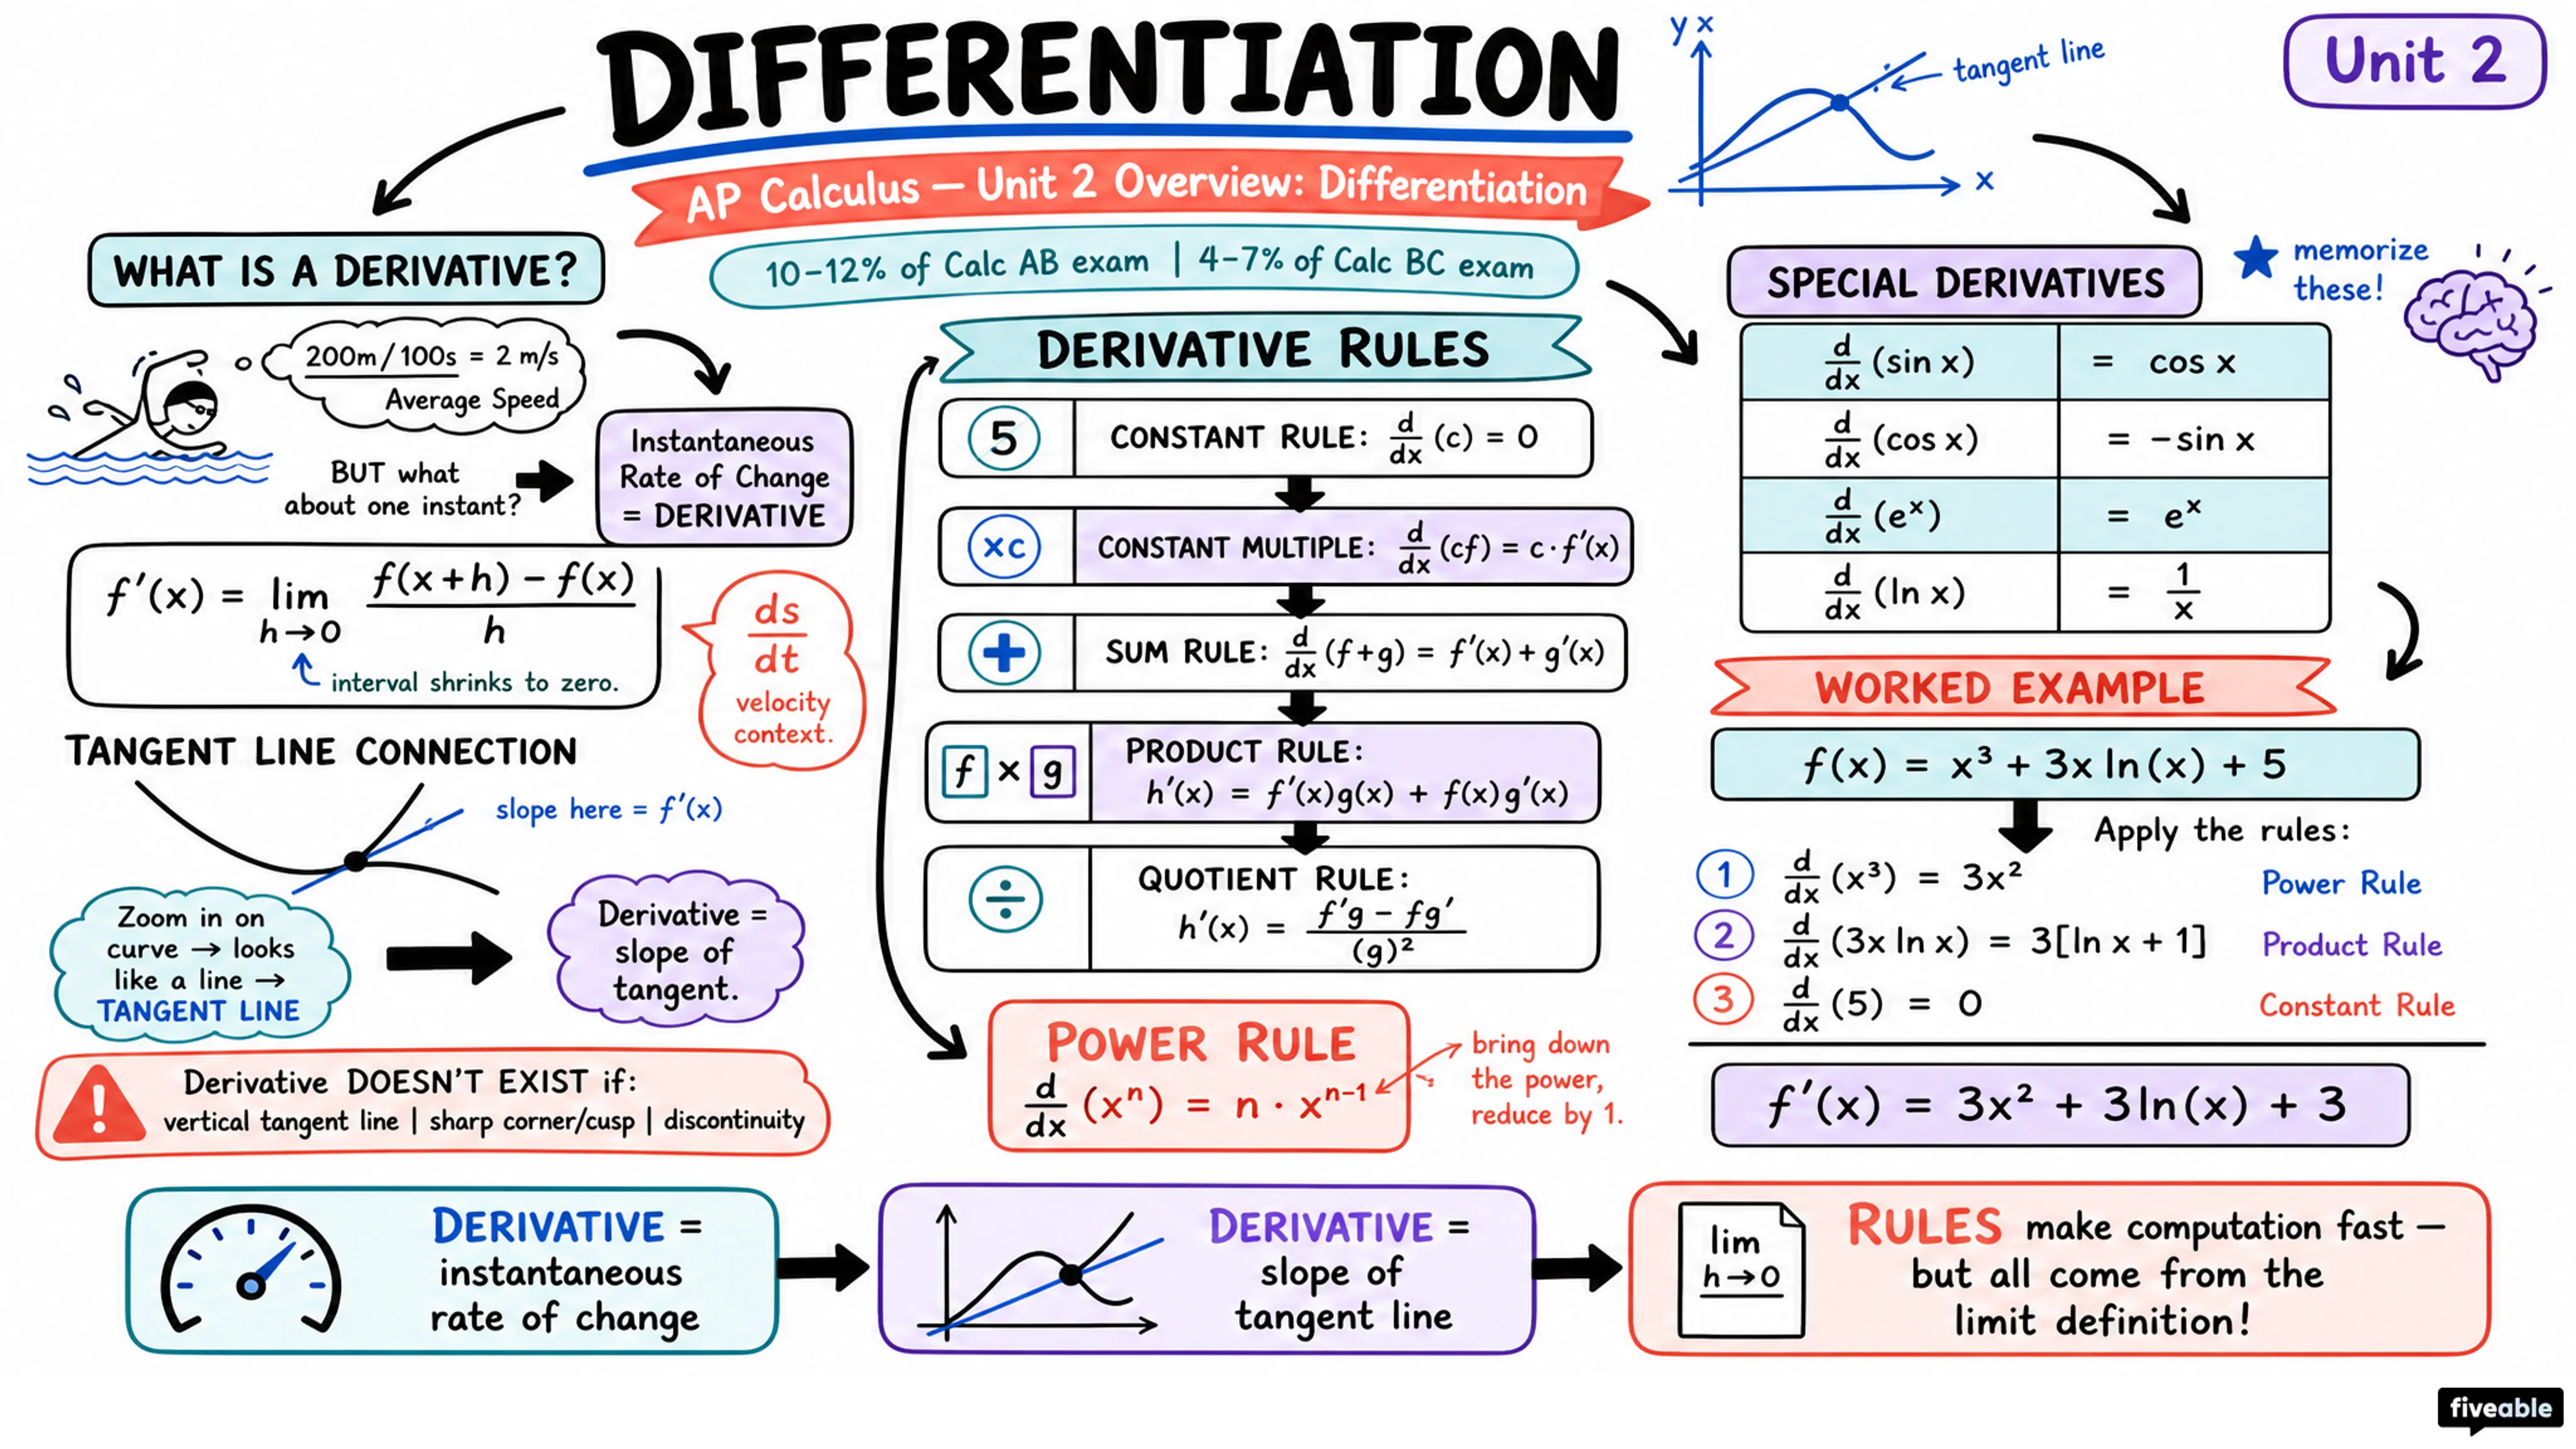 DIFFERENTIATION
AP Calculus — Unit 2 Overview: Differentiation
10–12% of Calc AB exam | 4–7% of Calc BC exam
y x
tangent line
x
Unit 2
WHAT IS A DERIVATIVE?
200m/100s = 2 m/s
Average Speed
BUT what
about one instant?
Instantaneous
Rate of Change
= DERIVATIVE
f′(x) = lim h→0 f(x+h) − f(x) / h
interval shrinks to zero.
ds/dt
velocity
context.
TANGENT LINE CONNECTION
slope here = f′(x)
Zoom in on
curve → looks
like a line →
TANGENT LINE
Derivative =
slope of
tangent.
! Derivative DOESN'T EXIST if:
vertical tangent line | sharp corner/cusp | discontinuity
DERIVATIVE RULES
5 CONSTANT RULE: d/dx (c) = 0
×c CONSTANT MULTIPLE: d/dx (cf) = c·f′(x)
+ SUM RULE: d/dx (f+g) = f′(x)+g′(x)
f × g PRODUCT RULE:
h′(x) = f′(x)g(x) + f(x)g′(x)
÷ QUOTIENT RULE:
h′(x) = f′g − fg′ / (g)²
POWER RULE
d/dx (xⁿ) = n · xⁿ⁻¹
bring down
the power,
reduce by 1.
SPECIAL DERIVATIVES
memorize
these!
d/dx (sin x) = cos x
d/dx (cos x) = −sin x
d/dx (eˣ) = eˣ
d/dx (ln x) = 1/x
WORKED EXAMPLE
f(x) = x³ + 3x ln(x) + 5
Apply the rules:
1 d/dx (x³) = 3x² Power Rule
2 d/dx (3x ln x) = 3[ln x + 1] Product Rule
3 d/dx (5) = 0 Constant Rule
f′(x) = 3x² + 3ln(x) + 3
DERIVATIVE =
instantaneous
rate of change
DERIVATIVE =
slope of
tangent line
lim
h→0
RULES make computation fast —
but all come from the
limit definition!
fiveable